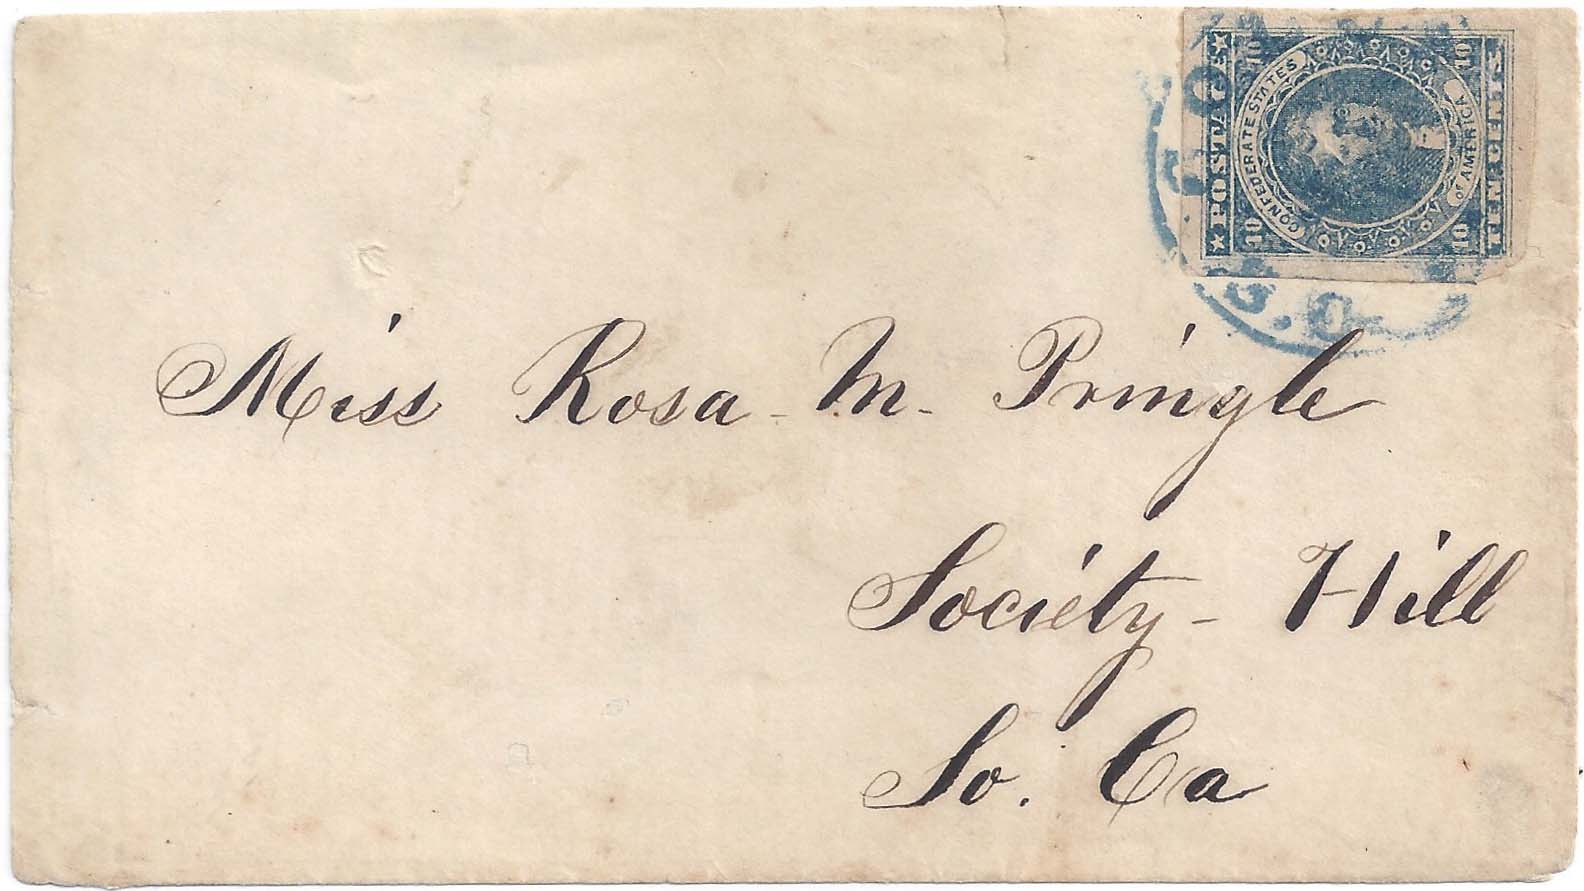 POSTAGE
CONFEDERATE STATES
OF AMERICA
TEN CENTS
10 10
10 10
Miss Rosa M. Pringle
Society-Hill
So. Ca